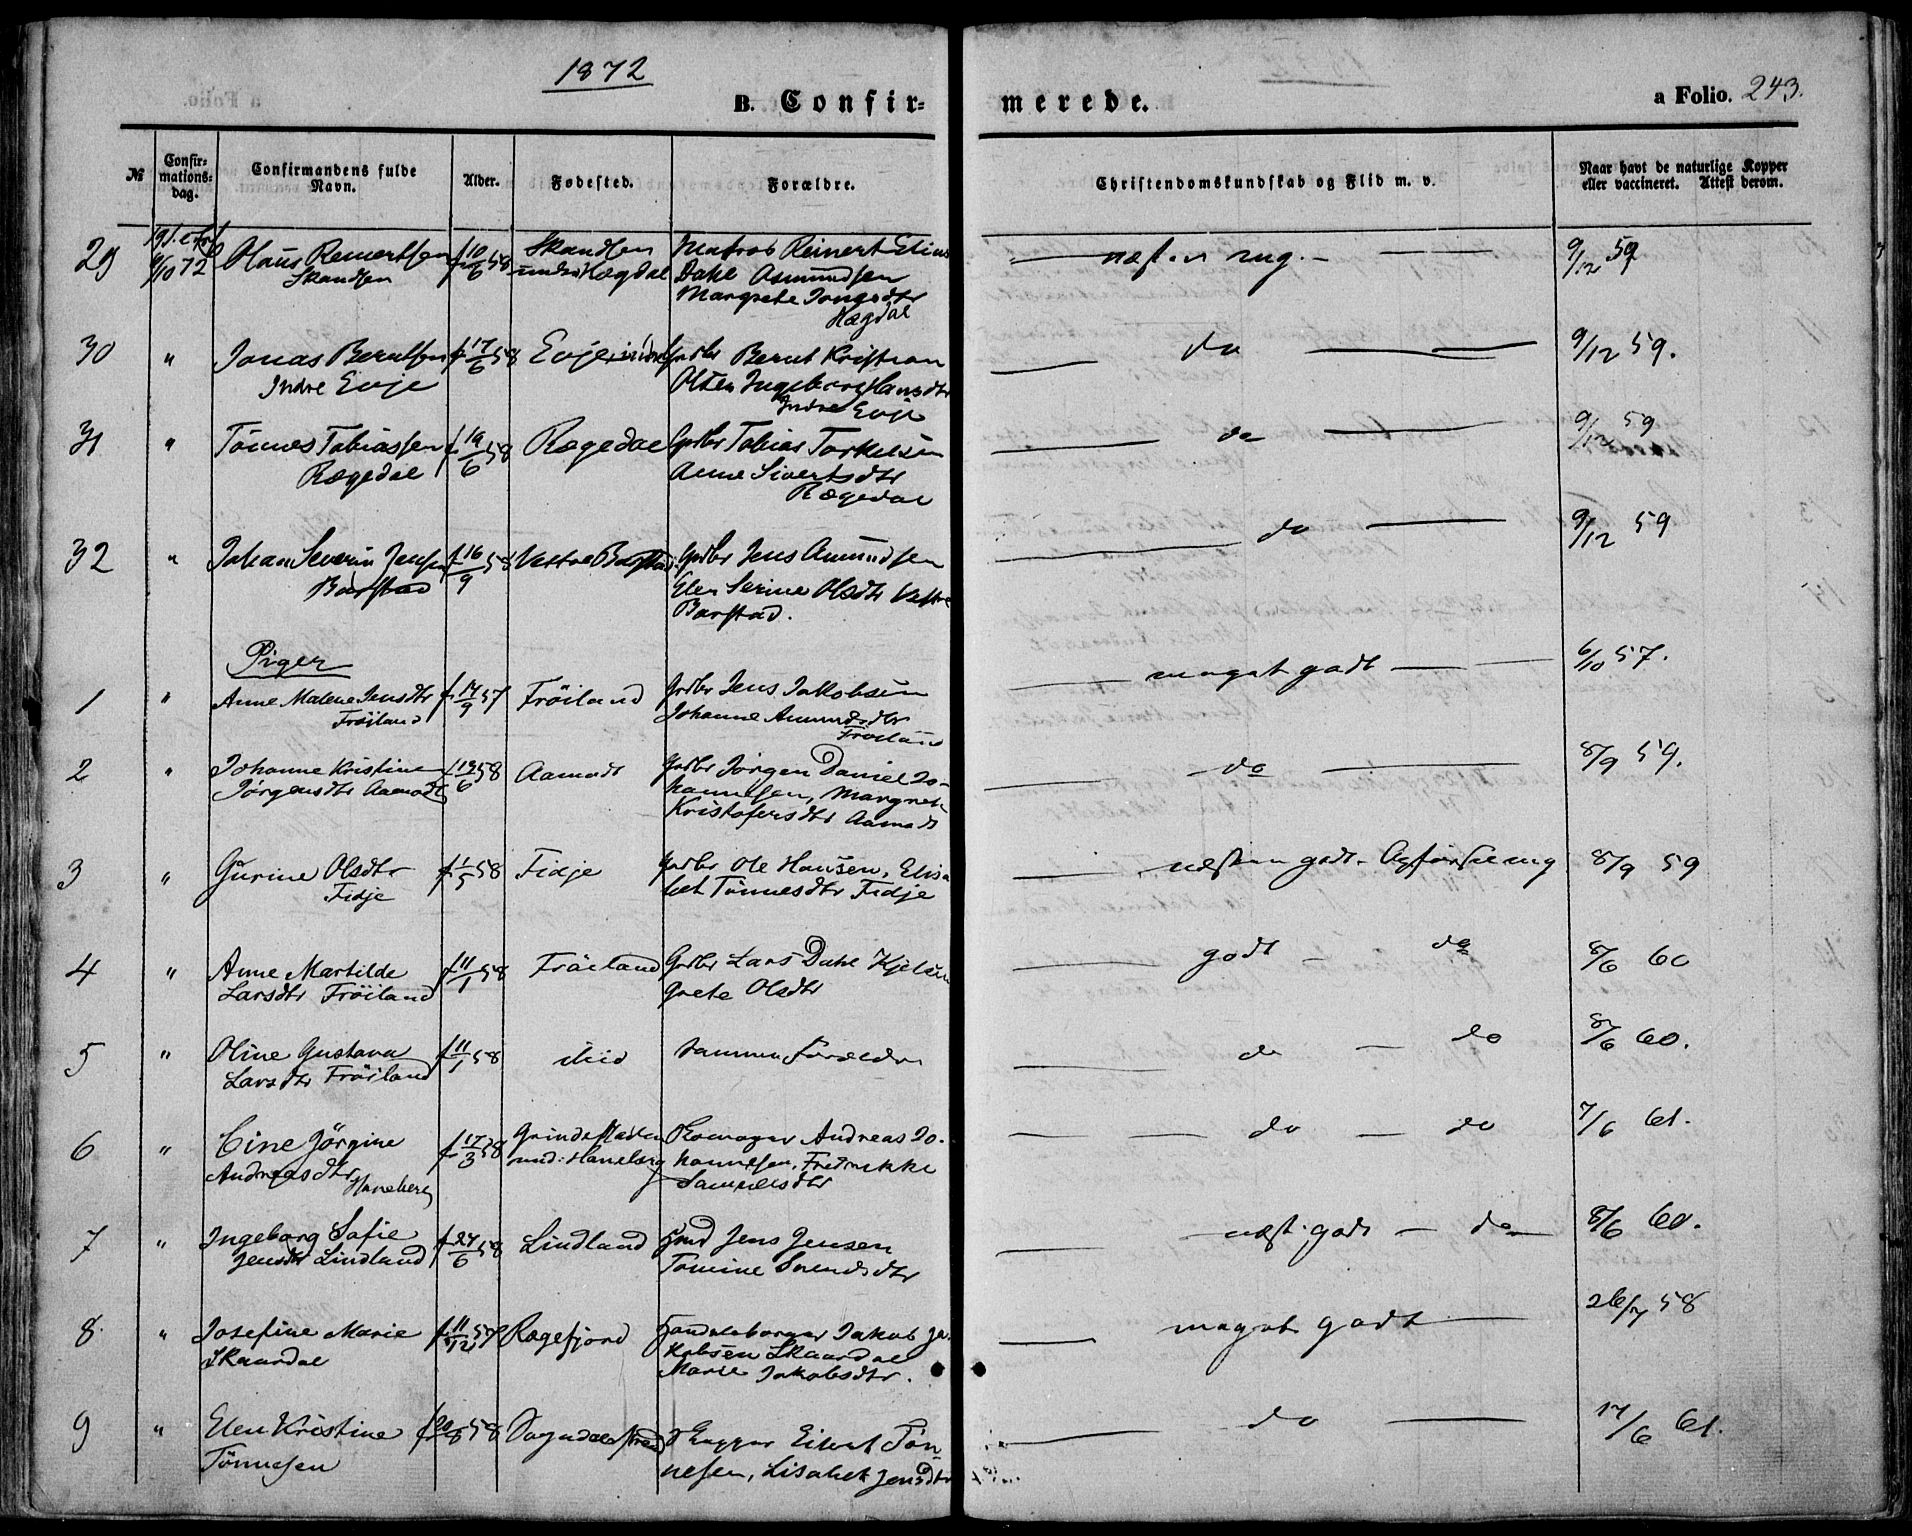 1872
B. Confir- merede.
a Folio. 243.
№ Confir-mations-dag. Confirmandens fulde Navn. Alder. Fødested. Forældre. Christendomskundskab og Flid m. v. Naar havt de naturlige Kopper eller vaccineret. Attest derom.
29 6/10 72 Olaus Reinertsen f 10/6 58 Skandsen Matros Reinert Elias næsten mg. 9/12 59
Skandsen under Hægdal Dahl Asmundsen
Margrete Tongsdtr
Hægdal
30 " Jonas Berntsen f 17/6 58 Evje indre Gdbr Bernt Kristian do 9/12 59.
Indre Evje Olsen Ingeborg Hansdtr
Indre Evje
31 " Tönnes Tobiassen f 19/6 58 Rægedal Gdbr Tobias Torkelsen do 9/12 59
Rægedal Anne Sivertsdtr
Rægedal
32 " Johan Severin Jensen f 16/9 58 Vestre Barstad Gdbr Jens Amundsen do 9/12 59
Barstad Elen Serine Olsdtr Vestre
Barstad.
Piger
1 " Anne Malene Jensdtr f 14/9 57 Fröiland Gdbr Jens Jakobsen meget godt 6/10 57.
Fröiland Johanne Amundsdtr
Fröiland
2 " Johanne Kristine f 19/6 58 Aamodt Gdbr Jörgen Daniel Jo- do 8/9 59.
Jörgensdtr Aamodt hannesen, Margrete
Kristofersdtr Aamodt
3 " Gurine Olsdtr f 1/5 58 Fidje Gdbr Ole Hansen, Elisa næsten godt - Opførsel mg 8/9 59
Fidje bet Tönnesdtr Fidje
4 " Anne Martilde f 11/1 58 Fröiland Gdbr Lars Dahl Kjelsen godt - do 8/6 60
Larsdtr Fröiland Grete Olsdtr
5 " Oline Gustava f 11/1 58 ibid samme Forældre do - do 8/6 60.
Larsdtr Fröiland
6 " Cine Jörgine f 17/3 58 Andreas Jo- do - do 7/6 61.
Andreasdtr Haneberg und: Haneberg hannesen, Fredrikke
Samuelsdtr
7 " Ingeborg Sofie f 24/6 58 Lindland Jens Jensen næst. godt - do 8/6 60.
Jensdtr Lindland Tomine Svendsdtr
8. " Josefine Marie f 11/12 57 Rægefjord Handelsborger Jakob Ja- meget godt 26/7 58
Skaardal kobsen Skaardal
Marie Jakobsdtr.
9 " Elen Kristine f 20/8 58 Sogndalsstrand Skipper Eilert Tön- do 17/6 61.
Tönnesen nesen, Lisabet Jensdtr